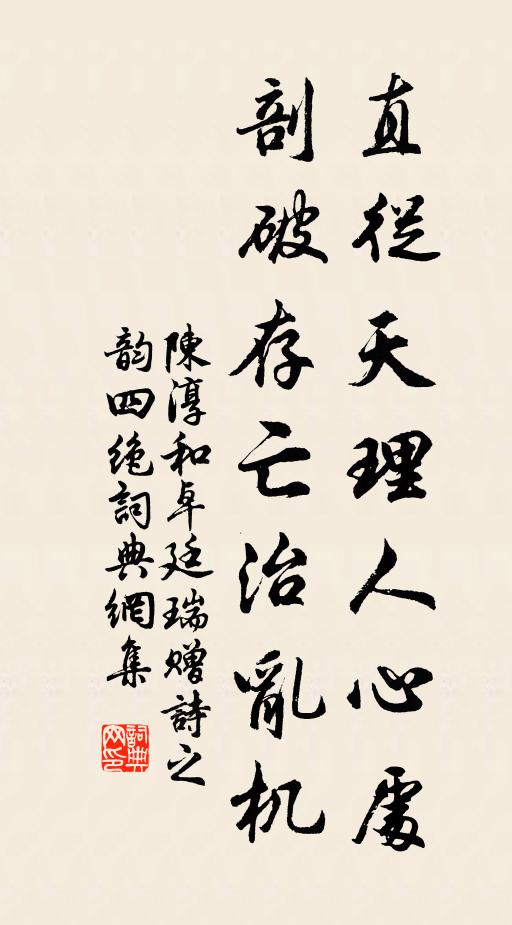 直從天理人心處
剖破存亡治亂机
陳淳和卓廷瑞贈詩之
韵四绝詞典網集
詞典网印